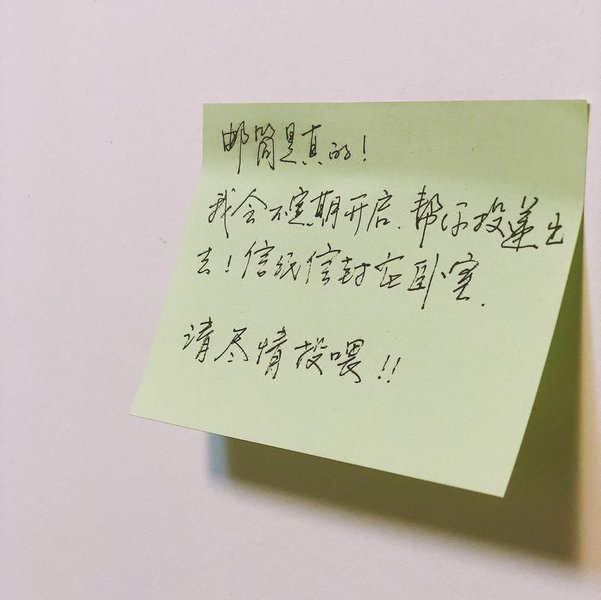 邮筒是真的!
我会不定期开启.帮你投递出
去!信纸信封在卧室.
请尽情投喂!!